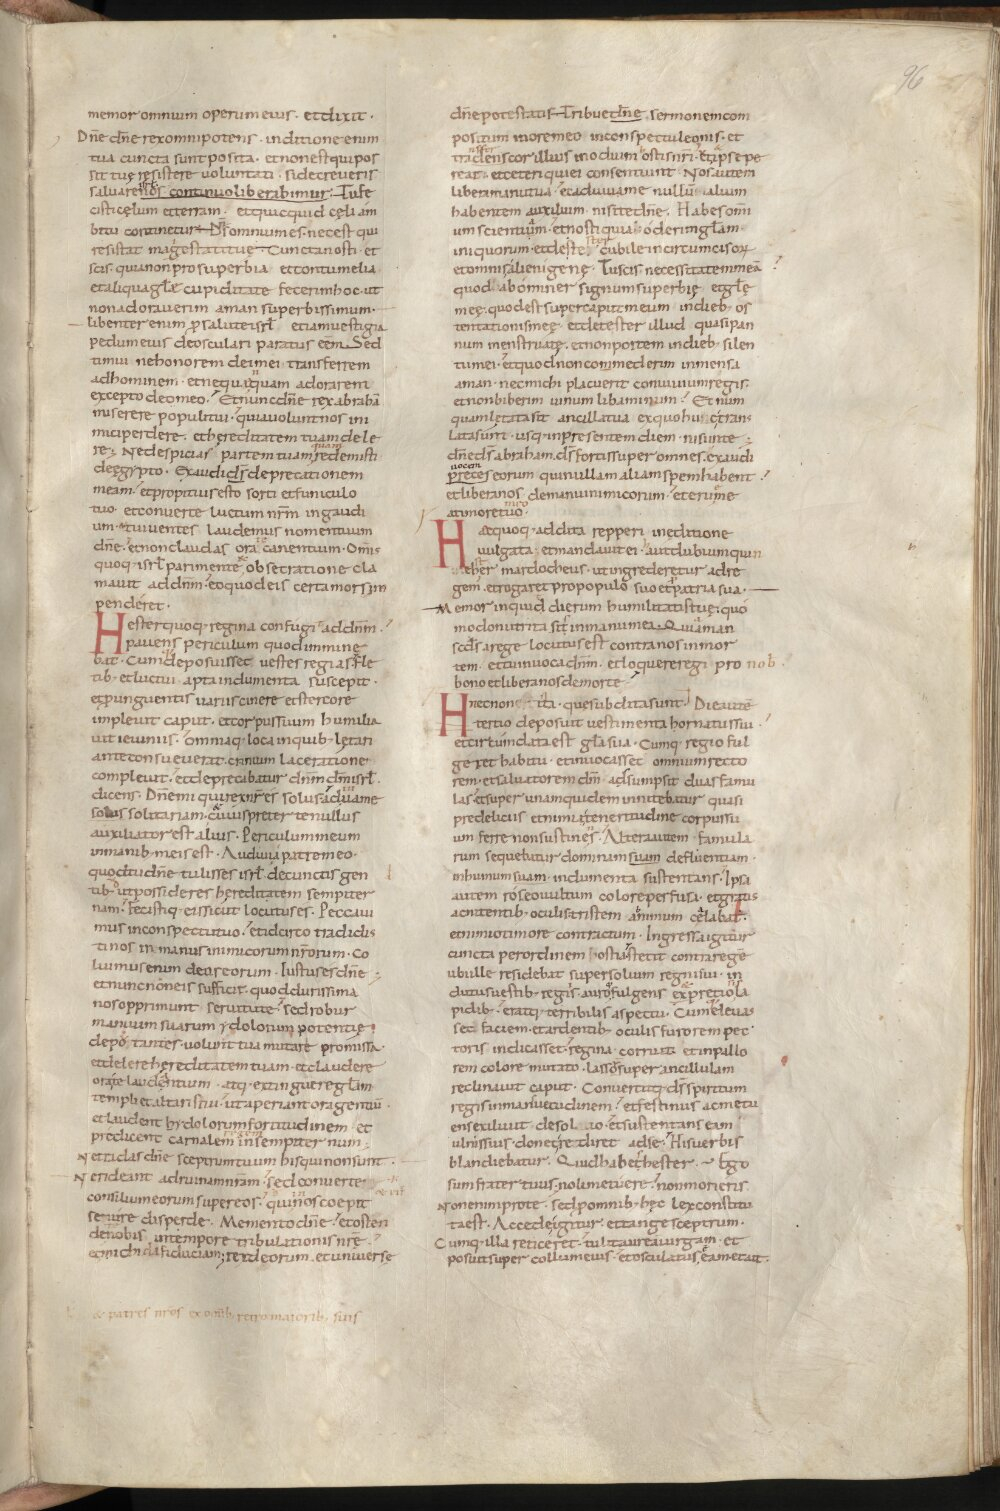 96
memor omnium operum eius · et dixit ·
Dn̄e dn̄e rex omnipotens · in ditione enim
tua cuncta sunt posita · et non est qui pos
sit tuę resistere voluntati · si decreveris
salvare nos continuo liberabimur · Tu fe
cisti cęlum et terram · et quicquid cęli am
bitu continetur · Dn̄s omnium es · nec est qui
resistat magestati tuę · Cuncta nosti · et
scis · quia non pro superbia et contumelia
et aliqua glę cupiditate fecerim hoc · ut
non adorarem aman superbissimum ·
libenter enim p salute isrl etiam vestigia
pedum eius deosculari paratus eēm · Sed
timui ne honorem dei mei transferrem
ad hominem · et nequaquam adorarem
excepto deo meo · Et nunc dn̄e rex abrahā
miserere populi tui · quia volunt nos ini
mici perdere · et hereditatem tuam dele
re · Ne despicias partem tuam quam redemisti
de ęgypto · Exaudi deprecationem
meam · et propitius esto sorti et funiculo
tuo · et converte luctum nrm in gaudi
um · ut viventes laudemus nomen tuum
dn̄e · et non claudas ora te canentium · Om̄is
quoq · isrl pari mente obsecratione cla
mavit ad dnm · eo quod eis certa mors im
penderet ·
Hester quoq · regina confugit ad dnm ·
pavens periculum quod immine
bat · Cumq deposuisset vestes regias fle
tib · et luctui apta indumenta suscepit ·
et p unguentis variis cinere et stercore
implevit caput · et corpus suum humilia
vit ieiuniis · omniaq · loca in quib · lętari
ante consueverat crinium laceratione
complevit · et deprecabatur dnm dm isrl
dicens · Dn̄e mi qui rex nr es solus adiuva me
solus solitariam · cuius pręter te nullus
auxiliator est alius · Periculum meum
in manib · meis est · Audivi a patre meo ·
quod tu dn̄e tulisses isrl de cunctis gen
tib · ut possideres hęreditatem sempiter
nam · fecistiq · eis sicut locutus es · Peccavi
mus in conspectu tuo · et idcirco tradidis
ti nos in manus inimicorum nrorum · Co
luimus enim deos eorum · Iustus es dn̄e
et nunc non eis sufficit · quod durissima
nos opprimunt servitute · sed robur
manuum suarum ydolorum potentię
deputantes · volunt tua mutare promissa ·
et delere hereditatem tuam · et claudere
ora te laudantium · atq · extinguere glam
templi et altaris tui · ut aperiant ora gentiū
et laudent hydolorum fortitudinem · et
predicent carnalem regem in sempiternum ·
Ne tradas dn̄e sceptrum tuum his qui non sunt ·
Ne rideant ad ruinam nram · sed converte
consilium eorum super eos · et qui in nos coepit
sevire disperde · Memento dn̄e · et osten
de nobis in tempore tribulationis nrę ·
et mihi da fiduciam · rex deorum · et universe
& patres nros ex omib retro maiorib suis
dn̄e potestatis · Tribue dn̄e sermonem com
positum in ore meo in conspectu leonis · et
transfer cor illius in odium hostis nri · et ipse pe
reat · et ceteri qui ei consentiunt · Nos autem
libera manu tua · et adiuva me nullū aliud
habentem auxilium nisi te dn̄e · Habes omī
um scientiam · et nosti quia oderim glam ·
iniquorum · et detester cubile incircumcisoꝝ
et omnis alienigenę · Tu scis necessitatem meā
quod abominer signum superbię · et glę
męę · quod est super caput meum in dieb · os
tentationis męę · et detester illud quasi pan
num menstruatę · et non portem in dieb · silen
tii mei · et quod non commederim in mensa
aman · nec michi placuerit convivium regis ·
et non biberim vinum libaminum · Et num
quam lętata sit ancilla tua ex quo huc trans
lata sum usq · in presentem diem · nisi in te
dn̄e ds abraham · ds fortis super omnes · exaudi
vocem preces eorum qui nullam aliam spem habent ·
et libera nos de manu inimicorum · et erue me
a timore meo tuo ·
Hęc quoq · addita repperi in editione
vulgata · et mandavit ei · aut dubium quin
hester mardocheus · ut ingrederetur ad re
gem · et rogaret pro populo suo et patria sua ·
Memor inquid dierum humilitatis tuę · quo
modo nutrita sis in manu mea · Quia aman
scds a rege locutus est contra nos in mor
tem · et tu invoca dnm · et loquere regi pro nob ·
bono et libera nos de morte
Hęc non et ista · que subdita sunt · Die autē
tertio deposuit vestimenta hornatus sui ·
et circumdata est gla sua · Cumq · regio ful
geret habitu · et invocasset omnium recto
rem · et salvatorem dm · adsumpsit duas famu
las · et super unam quidem innitebatur quasi
pre deliciis et nimia teneritudine corpus su
um ferre non sustinens · Altera autem famula
rum sequebatur dominam suam defluentiam
in humum suam · indumenta sustentans · Ipsa
autem roseo vultum colore perfusa · et gratis
ac nitentib · oculis tristem animum celabat ·
et nimio timore contractum · Ingressa igitur
cuncta per ordinem hostia stetit contra regē
ubi ille residebat super solium regni sui · in
dutus vestib · regiis auroq fulgens et pretiosis la
pidib · eratq · terribilis aspectu · Cumq elevas
set faciem · et ardentib · oculis furorem pec
toris indicasset · regina corruit et in pallo
rem colore mutato · lassū super ancillulam
reclinavit caput · Convertitq · ds spiritum
regis in mansuetudinem · et festinus ac metu
ens exilivit de solio · et sustentans eam
ulnis suis donec rediret ad se · His verbis
blandiebatur · Quid habes hester · Ego
sum frater tuus · noli metuere · non morieris ·
Non enim pro te · sed pro omnib · hęc lex constitu
ta est · Accede igitur · et tange sceptrum ·
Cumq · illa reticeret · tulit auream virgam · et
posuit super collum eius · et osculatus ē eam · et ait ·